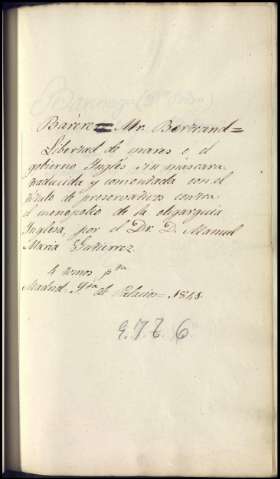 Barère = Mr. Bertrand =
Libertad de mares o el
gobierno Inglés sin máscara
traducida y comentada con el
título de preservativos contra
el monopolio de la oligarquía
Inglesa, por el Dr. D. Manuel
María Gutierrez
4 tomos
Madrid de Palacios 1841
9.7.6